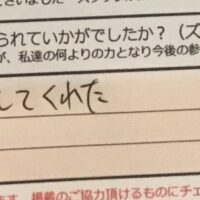 られていかがでしたか？（ズ
が、私達の何よりの力となり今後の参
してくれた
ます。掲載のご協力頂けるものにチェ